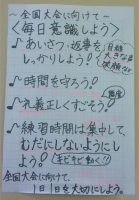 ~全国大会に向けて~
<毎日意識しよう>
♪あいさつ・返事を
しっかりしよう!
目線
大きな声
笑顔
♪時間を守ろう!
♪礼義正しくすごそう!
♪練習時間は集中して、
むだにしないようにし
よう!
(キビキビ動く!!)
全国大会に向けて、
1日1日を大切にしよう。